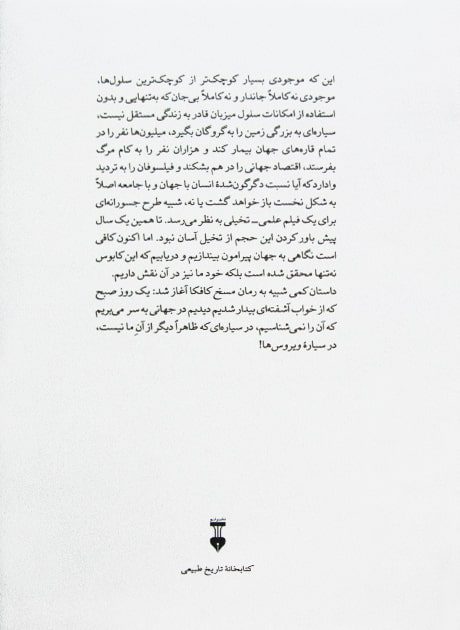 این که موجودی بسیار کوچک‌تر از کوچک‌ترین سلول‌ها،
موجودی نه‌کاملاً جاندار و نه‌کاملاً بی‌جان که به‌تنهایی و بدون
استفاده از امکانات سلول میزبان قادر به زندگی مستقل نیست،
سیاره‌ای به بزرگی زمین را به‌گروگان بگیرد، میلیون‌ها نفر را در
تمام قاره‌های جهان بیمار کند و هزاران نفر را به کام مرگ
بفرستد، اقتصاد جهانی را در هم بشکند و فیلسوفان را به تردید
وادارد که آیا نسبت دگرگون‌شدهٔ انسان با جهان و با جامعه اصلاً
به شکل نخست باز خواهد گشت یا نه، شبیه طرح جسورانه‌ای
برای یک فیلم علمی_تخیلی به نظر می‌رسد. تا همین یک سال
پیش باور کردن این حجم از تخیل آسان نبود. اما اکنون کافی
است نگاهی به جهان پیرامون بیندازیم و دریابیم که این کابوس
نه‌تنها محقق شده است بلکه خود ما نیز در آن نقش داریم.
داستان کمی شبیه به رمان مسخ کافکا آغاز شد: یک روز صبح
که از خواب آشفته‌ای بیدار شدیم دیدیم در جهانی به سر می‌بریم
که آن را نمی‌شناسیم، در سیاره‌ای که ظاهراً دیگر از آنِ ما نیست،
در سیارهٔ ویروس‌ها!
کتابخانهٔ تاریخ طبیعی